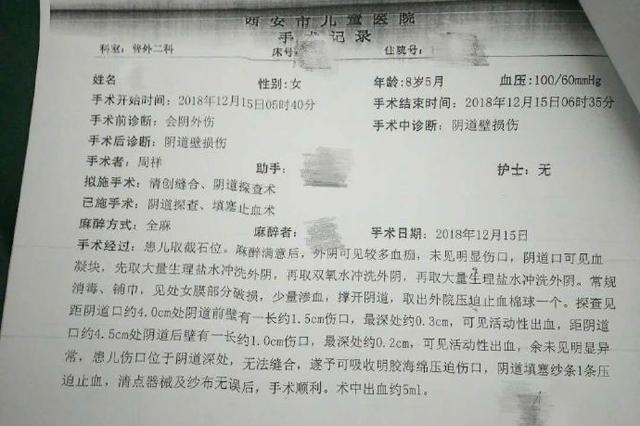 西安市儿童医院
手术记录
科室：普外二科 床号： 住院号：
姓名 性别：女 年龄：8岁5月 血压：100/60mmHg
手术开始时间：2018年12月15日05时40分 手术结束时间：2018年12月15日06时35分
手术前诊断：会阴外伤 手术中诊断：阴道壁损伤
手术后诊断：阴道壁损伤
手术者：周祥 助手： 护士：无
拟施手术：清创缝合、阴道探查术
已施手术：阴道探查、填塞止血术
麻醉方式：全麻 麻醉者： 手术日期：2018年12月15日
手术经过：患儿取截石位。麻醉满意后，外阴可见较多血痂，未见明显伤口，阴道口可见血
凝块，先取大量生理盐水冲洗外阴，再取双氧水冲洗外阴，再取大量生理盐水冲洗外阴。常规
消毒、铺巾，见处女膜部分破损，少量渗血，撑开阴道，取出外院压迫止血棉球一个。探查见
距阴道口约4.0cm处阴道前壁有一长约1.5cm伤口，最深处约0.3cm，可见活动性出血，距阴道
口约4.5cm处阴道后壁有一长约1.0cm伤口，最深处约0.2cm，可见活动性出血，余未见明显异
常，患儿伤口位于阴道深处，无法缝合，遂予可吸收明胶海绵压迫伤口，阴道填塞纱条1条压
迫止血，清点器械及纱布无误后，手术顺利。术中出血约5ml。